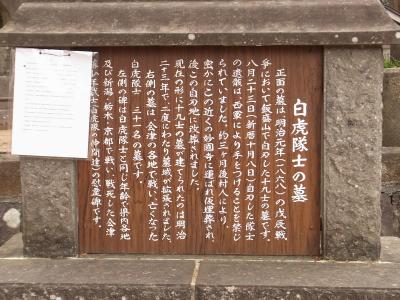 白虎隊士の墓
正面の墓は明治元年(一八六八)の戊辰戦
争において飯盛山で自刃した十九士の墓です。
八月二十三日(新暦十月八日)自刃した隊士
の遺骸は、西軍により手をつけることを禁じ
られていました。約三ヶ月後村人により、
密かにこの近くの妙国寺に運ばれ仮埋葬され、
後この自刃地に改葬されました。
現在の形に十九士の墓が建てられたのは明治
二十三年で、二度にわたり墓域が拡張されました。
右側の墓は、会津の各地で戦い、亡くなった
白虎隊士 三十一名の墓です。
左側の碑は白虎隊士と同じ年齢で県内各地
及び新潟・栃木・京都で戦い、戦死した会津
慰霊碑です。